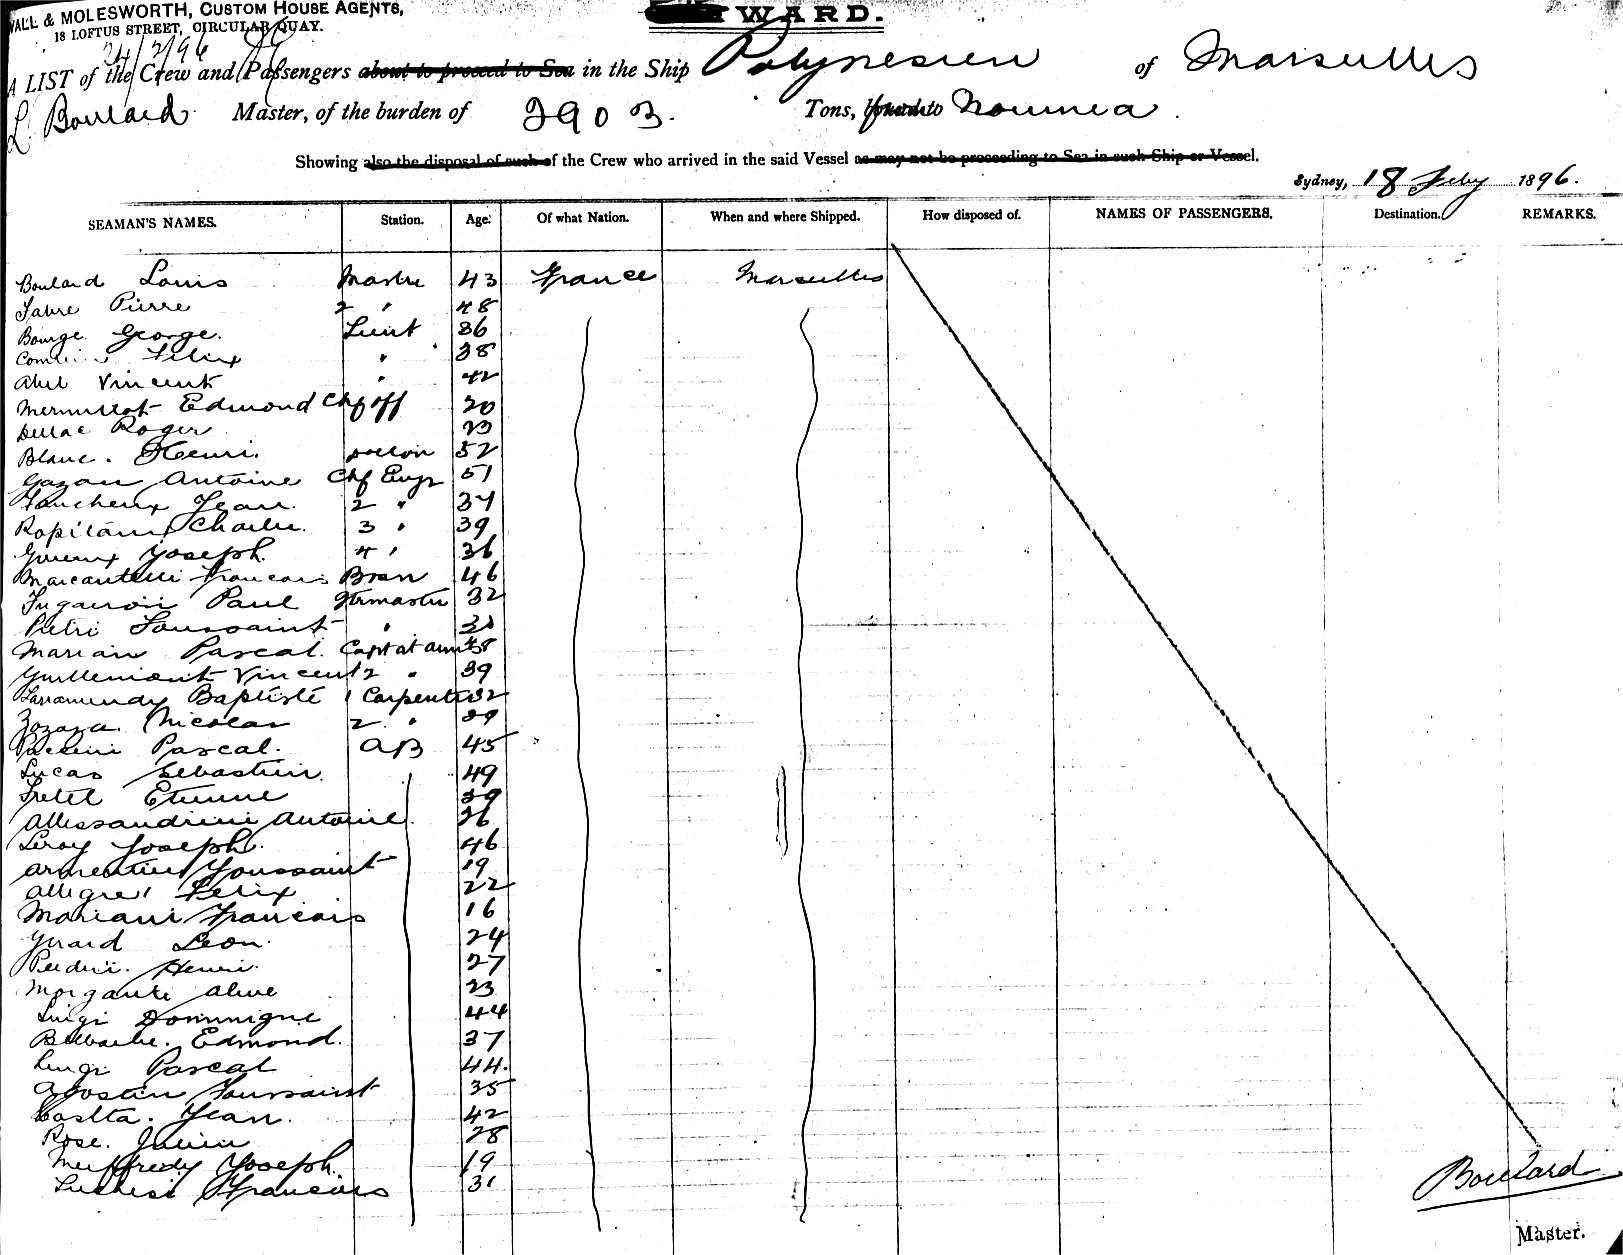 WALL & MOLESWORTH, CUSTOM HOUSE AGENTS,
18 LOFTUS STREET, CIRCULAR QUAY.
WARD.
A LIST of the Crew and Passengers about to proceed to Sea in the Ship Polynesien of Marseilles
L Boulard Master, of the burden of 2903. Tons, from Noumea.
Showing also the disposal of such of the Crew who arrived in the said Vessel as may not be proceeding to Sea in such Ship or Vessel.
Sydney, 18 Feby 1896.
SEAMAN'S NAMES. Station. Age. Of what Nation. When and where Shipped. How disposed of. NAMES OF PASSENGERS. Destination. REMARKS.
Boulard Louis Master 43 France Marseilles
Fabre Pierre 2 " 48
Bourge George. Lieut 36
Felix " 38
Abel Vincent " 42
Edmond Chf off 20
Roger 23
Blanc. Henri. 52
Gazan Antoine Chf Engr 51
Faucheux Jean. 2 " 37
Charles. 3 " 39
Joseph. 4 " 36
Marcantelli Francois Bosn 46
Paul Qtrmaster 32
Pietri Toussaint "
Marian Pascal. Capt at arms 48
Guillemont Vincent 2 " 39
Larramendy Baptiste 1 Carpenter 32
Zozaya Nicolas 2 " 39
Pascal. AB 45
Lucas Sebastien. 49
Fretel Etienne 39
Allessandrini Antoine. 26
Leroy Joseph. 46
Toussaint 19
Allegre Felix 22
Mariani Francois 16
Girard Leon. 24
Henri. 27
Morganti 23
Luigi Dominique 44
Edmond. 37
Luigi Pascal 44.
Agostin Toussaint 35
Casalta. Jean. 42
Rose. Julien 28
Meiffredy Joseph. 19
Luchesi Francois 31
Boulard
Master.